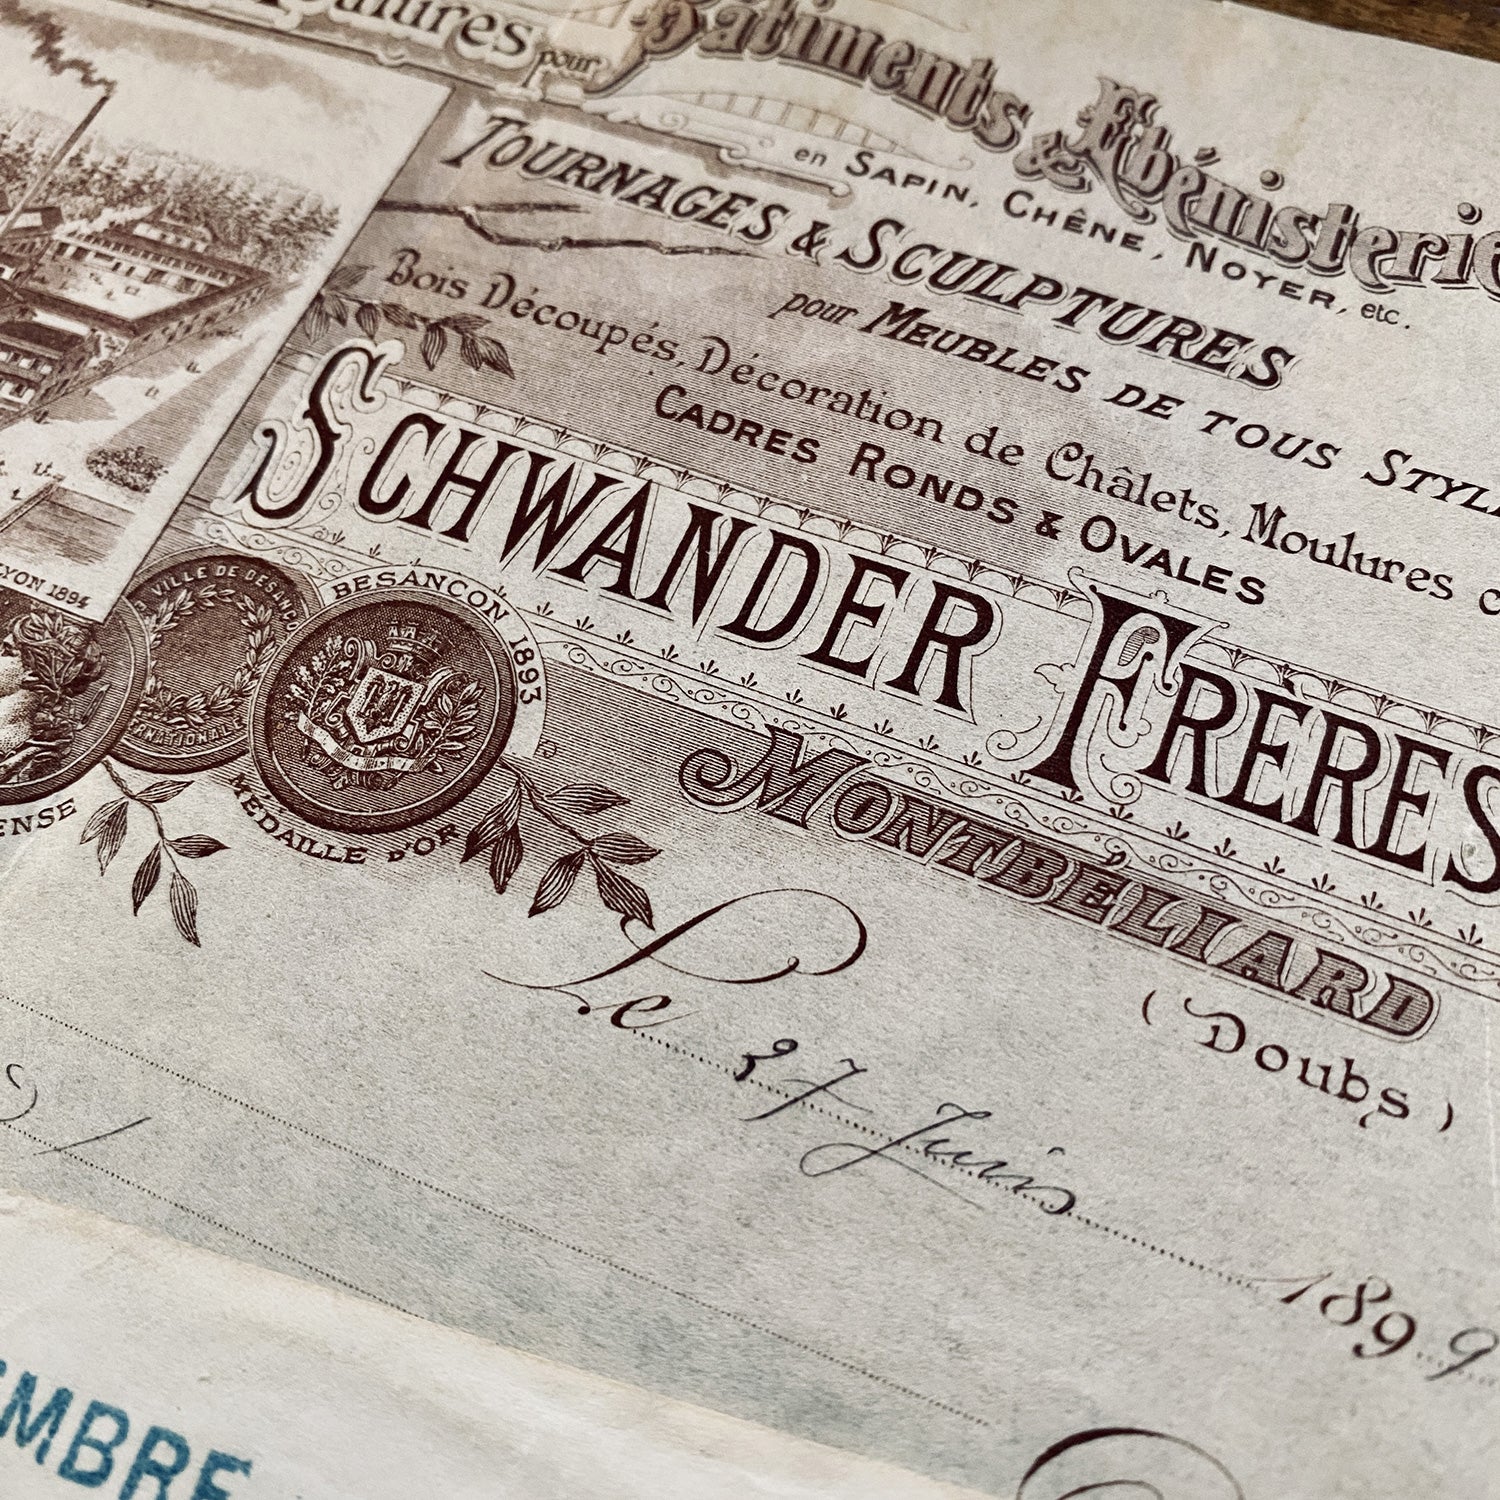 pour Bâtiments & Ébénisterie
en SAPIN, CHÊNE, NOYER, etc.
TOURNAGES & SCULPTURES
pour MEUBLES DE TOUS
Bois Découpés, Décoration de Châlets, Moulures
CADRES RONDS & OVALES
SCHWANDER FRÈRES
MONTBÉLIARD
(Doubs)
LYON 1894
VILLE DE BESANÇON
BESANÇON 1893
MÉDAILLE D'OR
Le 27 Juin 1899